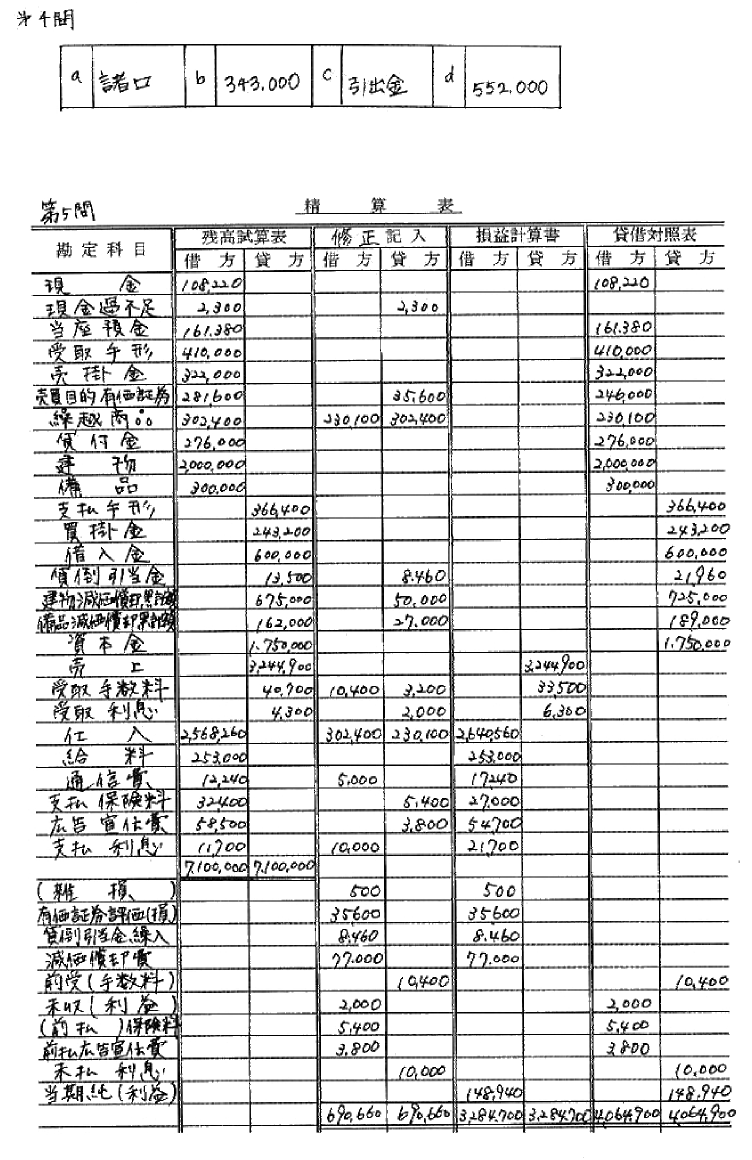 第4問
a 諸口 b 343,000 c 引出金 d 552,000
第5問 精算表
勘定科目 残高試算表 修正記入 損益計算書 貸借対照表
借方 貸方 借方 貸方 借方 貸方 借方 貸方
現金 108,220 108,220
現金過不足 2,300 2,300
当座預金 161.380 161.380
受取手形 410,000 410,000
売掛金 322,000 322,000
売買目的有価証券 281,600 35,600 246,000
繰越商品 302,400 230,100 302,400 230,100
貸付金 276,000 276,000
建物 2,000,000 2,000,000
備品 300,000 300,000
支払手形 366,400 366,400
買掛金 243,200 243,200
借入金 600,000 600,000
貸倒引当金 13,500 8.460 21,960
建物減価償却累計額 675,000 50,000 725,000
備品減価償却累計額 162,000 27,000 189,000
資本金 1,750,000 1,750,000
売上 3,244,900 3,244,900
受取手数料 40,700 10,400 3,200 33,500
受取利息 4,300 2,000 6,300
仕入 2,568,260 302,400 230,100 2,640,560
給料 253,000 253,000
通信費 12,240 5,000 17240
支払保険料 32400 5,400 27,000
広告宣伝費 58,500 3,800 54700
支払利息 11,700 10,000 21,700
7,100,000 7,100,000
(雑損) 500 500
有価証券評価(損) 35600 35600
貸倒引当金繰入 8.460 8.460
減価償却費 77.000 77.000
前受(手数料) 10,400 10,400
未収(利益) 2,000 2,000
(前払)保険料 5,400 5,400
前払広告宣伝費 3,800 3,800
未払利息 10,000 10,000
当期純(利益) 148,940 148,940
690,660 690,660 3,284,700 3,284,700 4,064,900 4,064,900